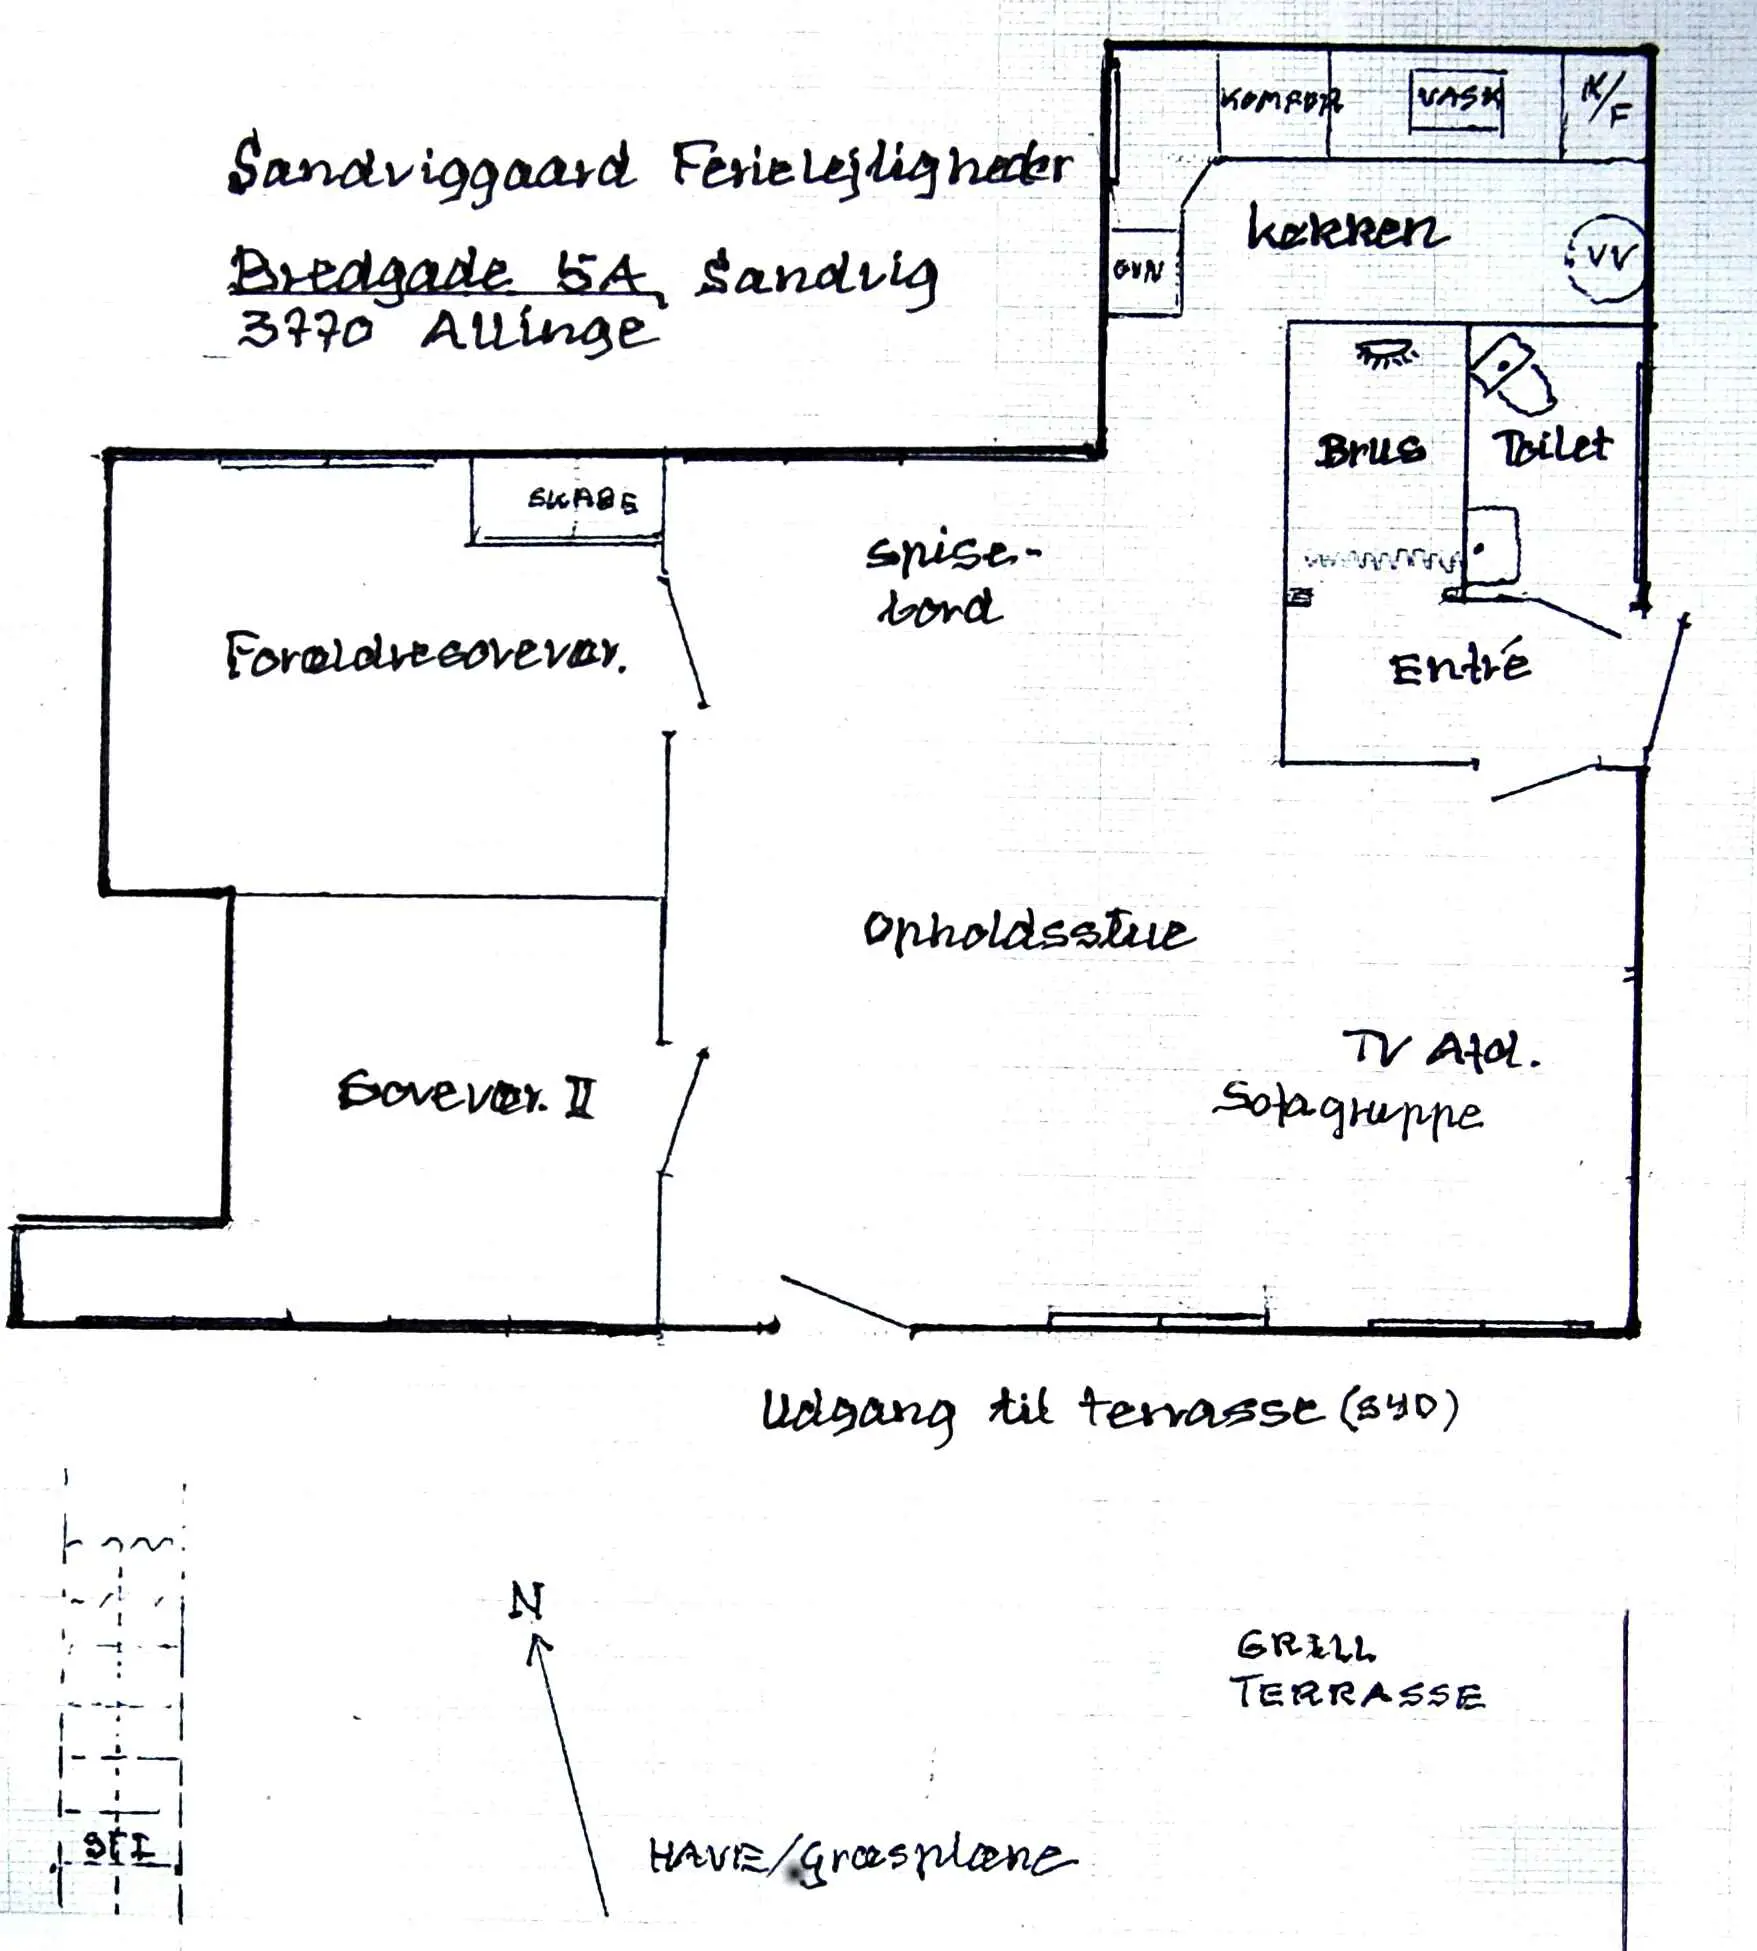 Sandviggaard Ferielejligheder
Bredgade 5A, Sandvig
3770 Allinge
KOMFUR
VASK
K/F
Køkken
VV
OVN
Brus
Toilet
SKABE
Spise-
bord
Forældresovevær.
Entré
Opholdsstue
TV Afd.
Sofagruppe
Sovevær. II
Udgang til terrasse (SYD)
N
GRILL
TERRASSE
STI
HAVE/Græsplæne